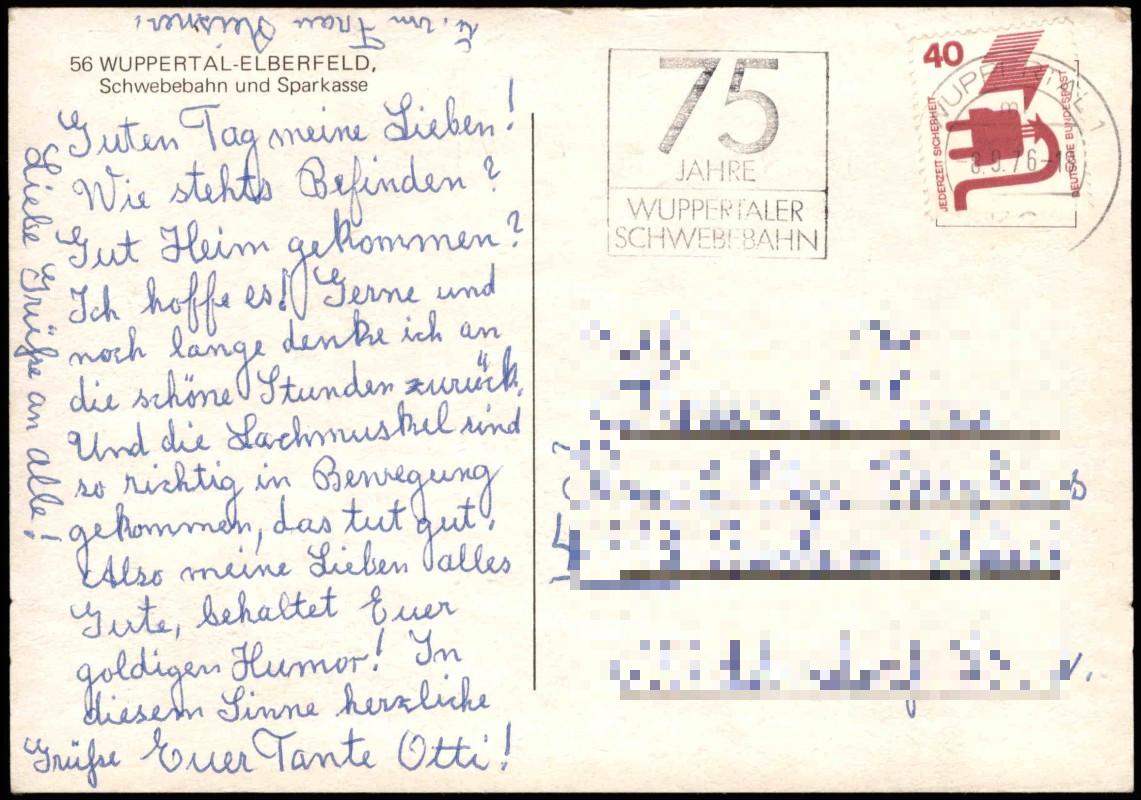 56 WUPPERTAL-ELBERFELD,
Schwebebahn und Sparkasse
Guten Tag meine Lieben!
Wie stehts Befinden?
Gut Heim gekommen?
Ich hoffe es! Gerne und
noch lange denke ich an
die schöne Stunden zurück.
Und die Lachmuskel sind
so richtig in Bewegung
gekommen, das tut gut.
Also meine Lieben alles
Gute, behaltet Euer
goldigen Humor! In
diesem Sinne herzliche
Grüße Euer Tante Otti!
Liebe Grüße an alle!
u. von Frau
75
JAHRE
WUPPERTALER
SCHWEBEBAHN
40
JEDERZEIT SICHERHEIT
DEUTSCHE BUNDESPOST
WUPPERTAL 1